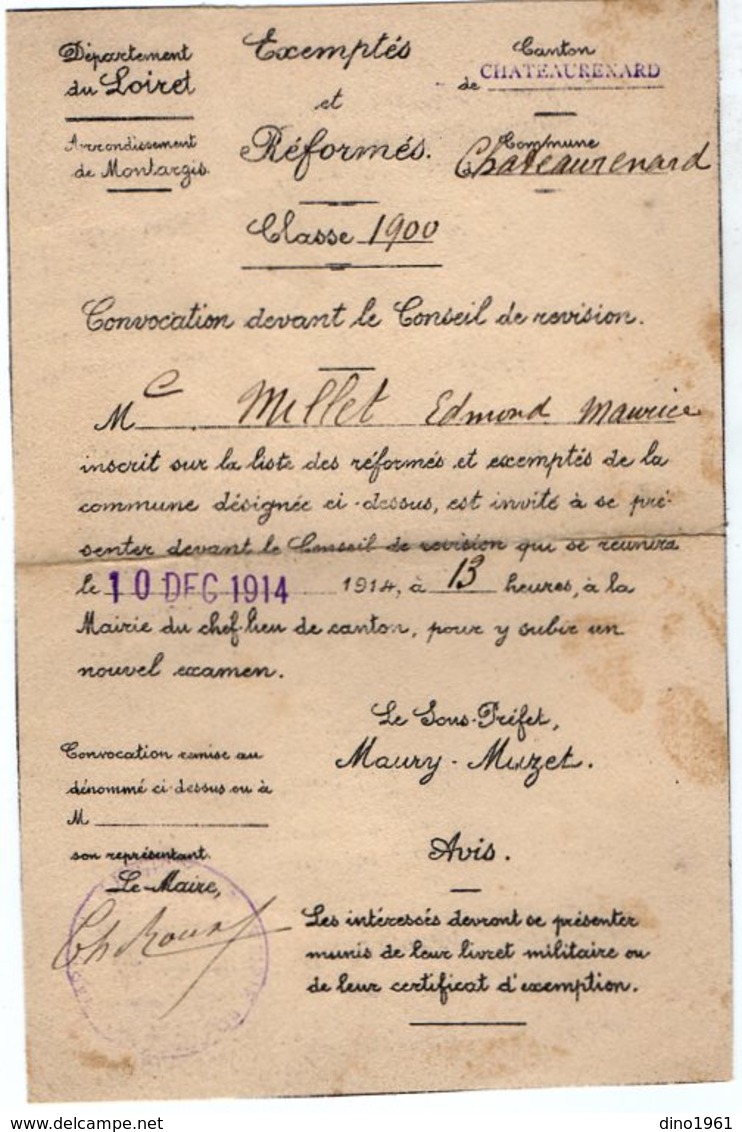 Département
du Loiret
Arrondissement
de Montargis.
Exemptés
et
Réformés.
Canton
de CHATEAURENARD
Commune
Chateaurenard
Classe 1900
Convocation devant le Conseil de revision.
M. Millet Edmond Maurice
inscrit sur la liste des réformés et exemptés de la
commune désignée ci-dessus, est invité à se pré-
senter devant le Conseil de revision qui se réunira
le 10 DEC 1914 1914, à 13 heures, à la
Mairie du chef-lieu de canton, pour y subir un
nouvel examen.
Le Sous-Préfet,
Maury-Muzet.
Convocation remise au
dénommé ci-dessus ou à
M
son représentant.
Le Maire,
Avis.
Les intéressés devront se présenter
munis de leur livret militaire ou
de leur certificat d'exemption.
dino1961